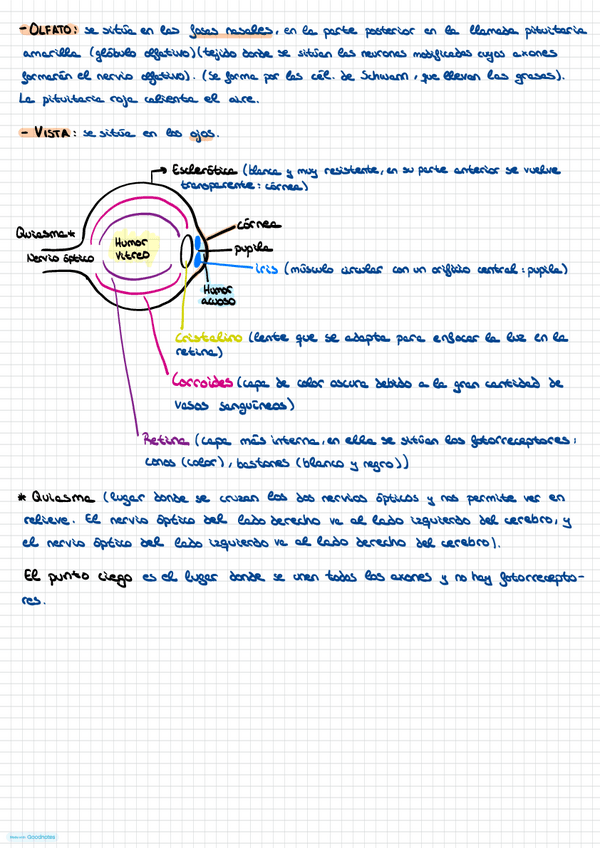 - OLFATO: se sitúa en las fosas nasales, en la parte posterior en la llamada pituitaria
amarilla (glóbulo olfativo) (tejido donde se sitúan las neuronas modificadas cuyos axones
formarán el nervio olfativo). (Se forma por las cél. de Schwann, que llevan las grasas).
La pituitaria roja calienta el aire.
- VISTA: se sitúa en los ojos.
Esclerótica (blanca y muy resistente, en su parte anterior se vuelve
transparente: córnea)
Quiasma*
Nervio óptico
Humor
vitreo
córnea
pupila
Iris (músculo circular con un orificio central: pupila)
Humor
acuoso
Cristalino (lente que se adapta para enfocar la luz en la
retina)
Corroides (capa de color oscura debido a la gran cantidad de
vasos sanguíneos)
Retina (capa más interna, en ella se sitúan los fotorreceptores:
conos (color), bastones (blanco y negro))
* Quiasma (lugar donde se cruzan los dos nervios ópticos y nos permite ver en
relieve. El nervio óptico del lado derecho va al lado izquierdo del cerebro, y
el nervio óptico del lado izquierdo va al lado derecho del cerebro).
El punto ciego es el lugar donde se unen todos los axones y no hay fotorrecepto-
res.
Made with Goodnotes